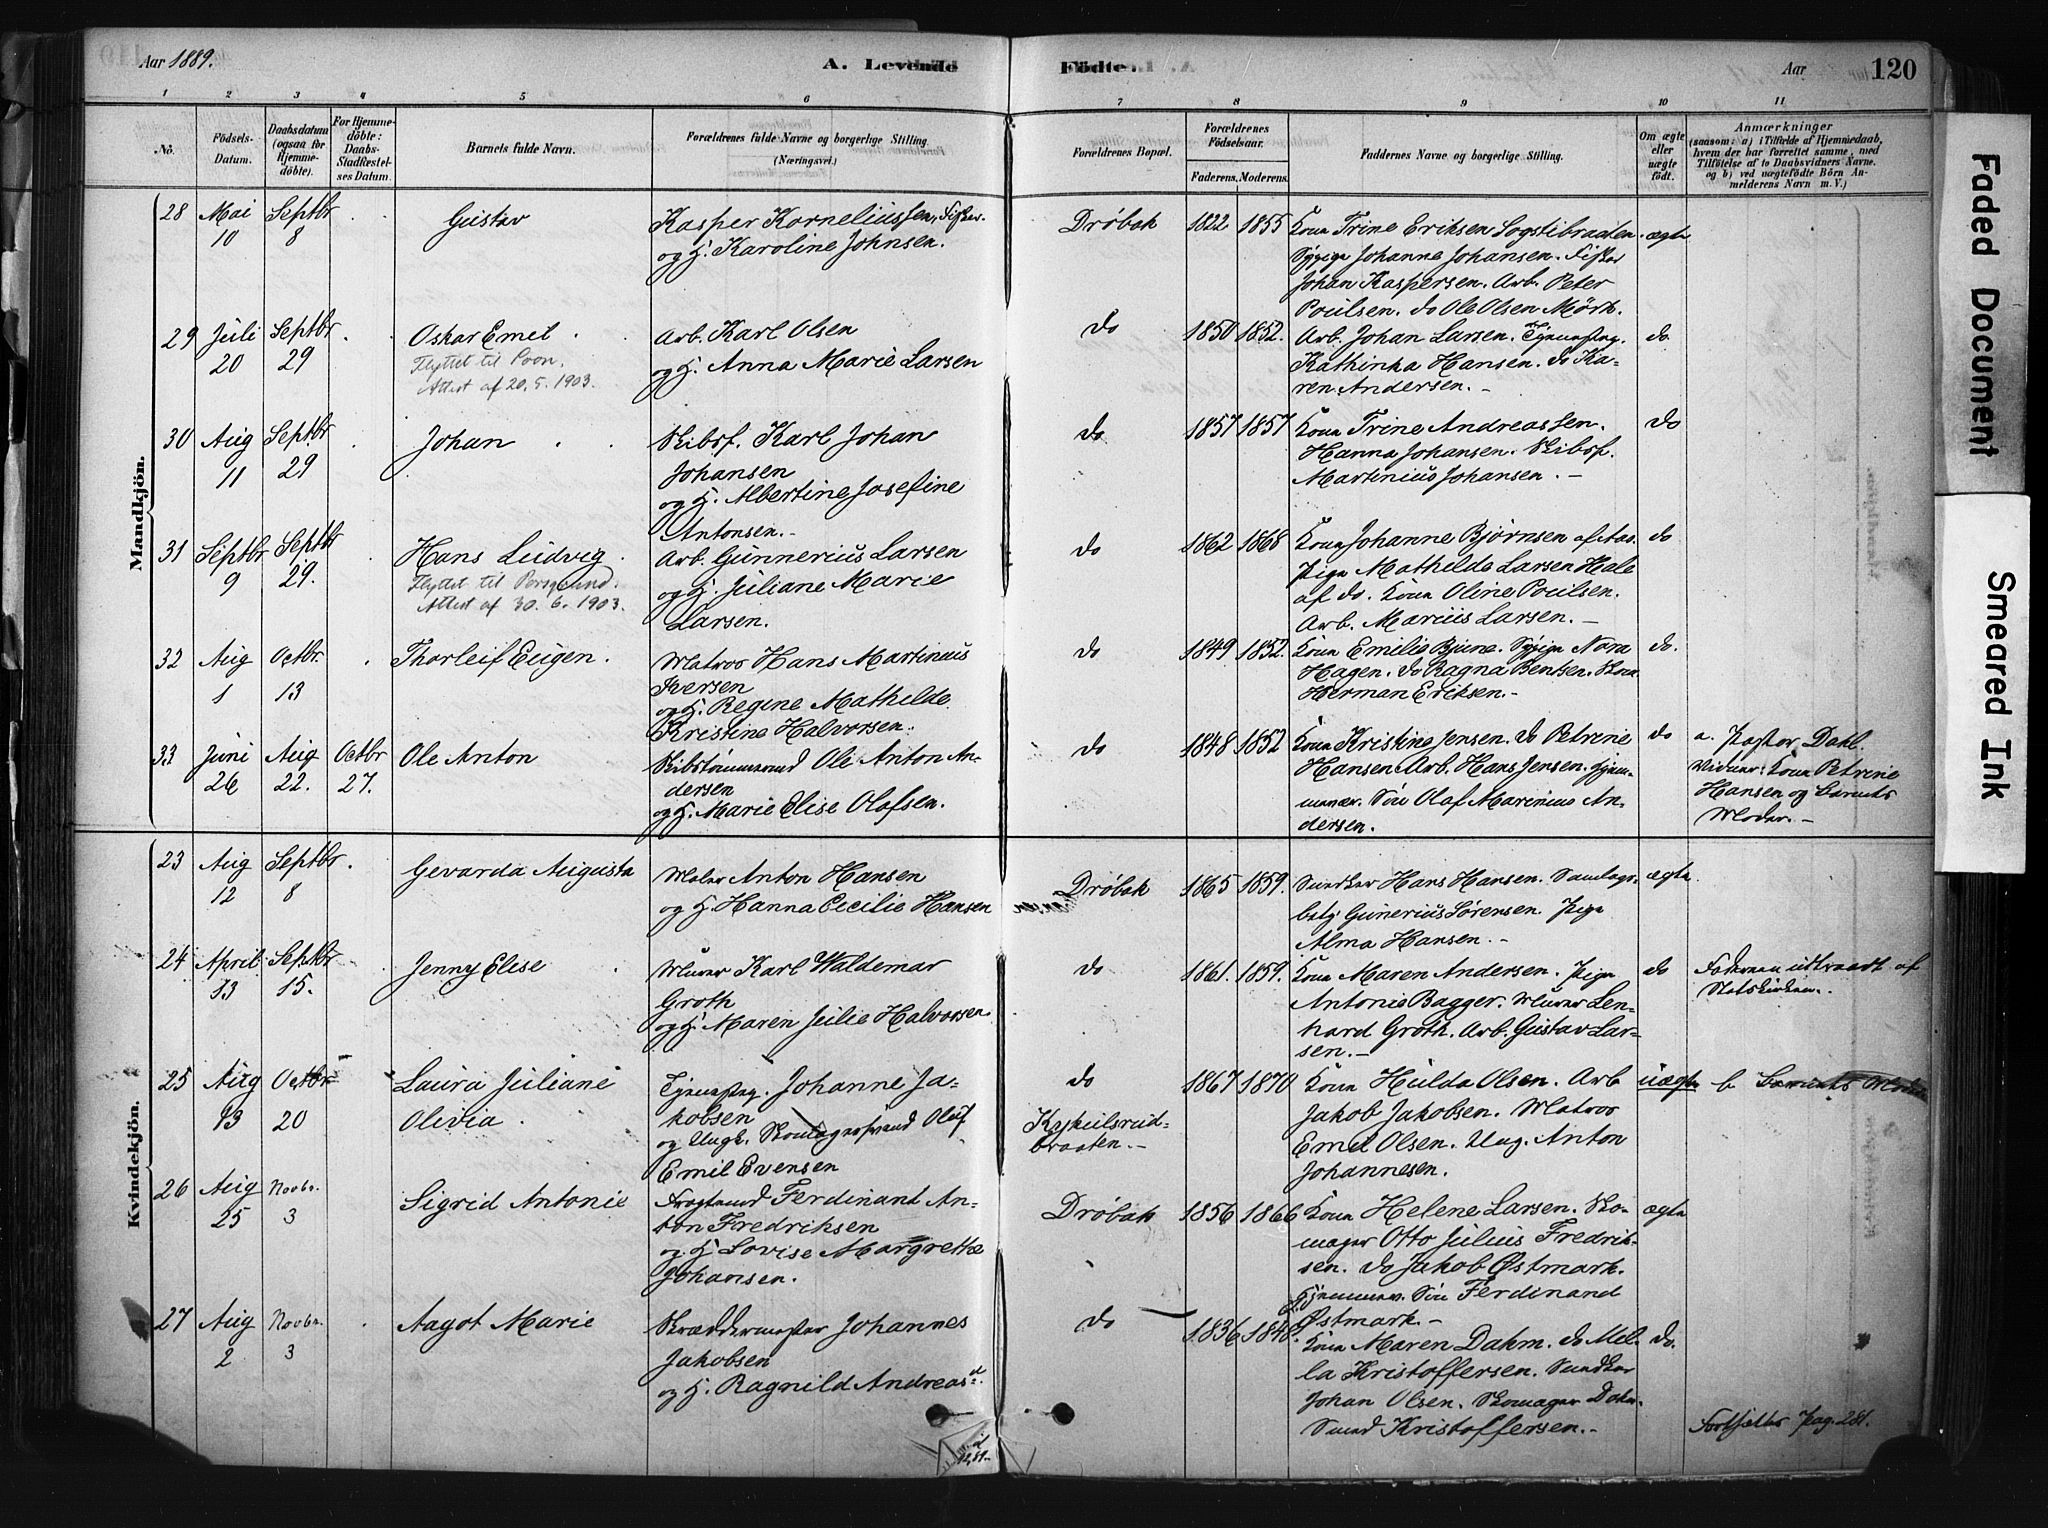 Aar 1889.
A. Levende
Födte.
Aar
120
1 2 3 4 5 6 7 8 9 10 11
Nô.
Födsels-
Datum.
Daabsdatum
(ogsaa for
Hjemme-
döbte).
For Hjemme-
döbte:
Daabs-
Stadfæstel-
ses Datum.
Barnets fulde Navn.
Forældrenes fulde Navne og borgerlige Stilling
(Næringsvei.)
Forældrenes Bopæl.
Forældrenes
Födselsaar.
Faderens. Moderens.
Faddernes Navne og borgerlige Stilling.
Om ægte
eller
uægte
födt.
Anmærkninger
(saasom: a) i Tilfælde af Hjemmedaab,
hvem der har forrettet samme, med
Tilföielse af to Daabsvidners Navne.
og b) ved uægtefödte Börn An-
melderens Navn m. V.)
Mandkjön.
28 Mai 10 Septbr 8
Gustav
Kasper Korneliussen, Fisker.
og H. Karoline Johnsen.
Dröbak 1822 1855
Kona Trine Eriksen Sogstibraaten.
Sypige Johanne Johansen. Fisker
Johan Kaspersen. Arb. Peter
Poulsen. do Ole Olsen Mörk.
ægte
29 Juli 20 Septbr 29
Oskar Emil
Flyttet til
Attest af 20.5.1903.
Arb. Karl Olsen
og H. Anna Marie Larsen
do 1850 1852.
Arb. Johan Larsen. Tjenestpg.
Kathinka Hansen. do Ka-
ren Andersen. -
do.
30 Aug 11 Septbr 29
Johan
Skibsf. Karl Johan
Johansen
og H. Albertine Josefine
Antonsen.
do 1857 1857
Kona Trine Andreassen.
Hanna Johansen. Skibsf.
Martinius Johansen. -
do
31 Septbr 9 Septbr 29.
Hans Ludvig.
Flyttet til Porsgrund.
Attest af 30.6.1903.
Arb. Gunnerius Larsen
og H. Juliane Marie
Larsen.
do 1862 1868
Kona Johanne Björnsen af Aas.
Pige Mathilde Larsen Hale
af do. Kona Oline Poulsen.
Arb. Marius Larsen. -
do
32 Aug 1 Octbr. 13
Thorleif Eugen.
Matros Hans Martinius
Iversen
og H. Regine Mathilde
Kristine Halvorsen.
do 1849 1852.
Kona Emilie Bjune. Sypige Nora
Hagen. do Ragna Bentsen. Skom
Herman Eriksen. -
do.
33 Juni 26 Aug 22. Octbr 27.
Ole Anton
Skibstömmermd Ole Anton An-
dersen
og H. Marie Elise Olafsen.
do 1848 1852
Kona Kristine Jensen. do Petrine
Hansen Arb. Hans Jensen. Hjem-
meväer. Sön Olaf Marinius An-
dersen.
do
a. Pastor Dahl.
Vidner: Kona Petrine
Hansen og Barnets
Moder. -
Kvindekjön.
23 Aug 12 Septbr 8
Gevarda Augusta
Maler Anton Hansen
og H. Hanna Cecilie Hansen
Dröbak 1865 1859.
Snedker Hans Hansen. Samlags-
bstj. Gunerius Sörensen. Pige
Alma Hansen. -
ægte
24 April 13 Septbr 15.
Jenny Elise
Murer Karl Waldemar
Groth
og H. Maren Julie Halvorsen
do 1861. 1859.
Kona Maren Andersen. Pige
Antonie Bagger. Murer Len-
hard Groth. Arb. Gustav Lar-
sen. -
do
Faderen udtraadt af
Statskirken.
25 Aug 13 Octbr 20
Laura Juliane
Olivia
Tjenestpg. Johanne Ja-
kobsen
og Ungk. Olaf
Emil Evensen
do
Kykeilsrud-
braaten. -
1867 1870
Kona Hulda Olsen. Arb
Jakob Jakobsen. Matros
Emil Olsen. Ung. Anton
Johannesen.
uægte
b Barnets Moder
26 Aug 25 Novbr. 3
Sigrid Antonie
Ferdinant An-
ton Fredriksen
og H Lovise Margrethe
Johansen.
Dröbak 1856 1866
Kona Helene Larsen. Sko-
mager Otto Julius Fredrik-
sen. do Jakob Østmark.
Hjemmev. Sön Ferdinand
Østmark. -
ægte
27 Aug 2 Novbr. 3
Aagot Marie
Skræddermester Johannes
Jakobsen
og H. Ragnild Andreasd.
do 1836 1848.
Kona Maren Dahm. do Mil-
la Kristoffersen. Snedker
Johan Olsen. Skomager Dahm.
Smed Kristoffersen. -
do.
Fortsættes Pag. 281.
Faded Document
Smeared Ink